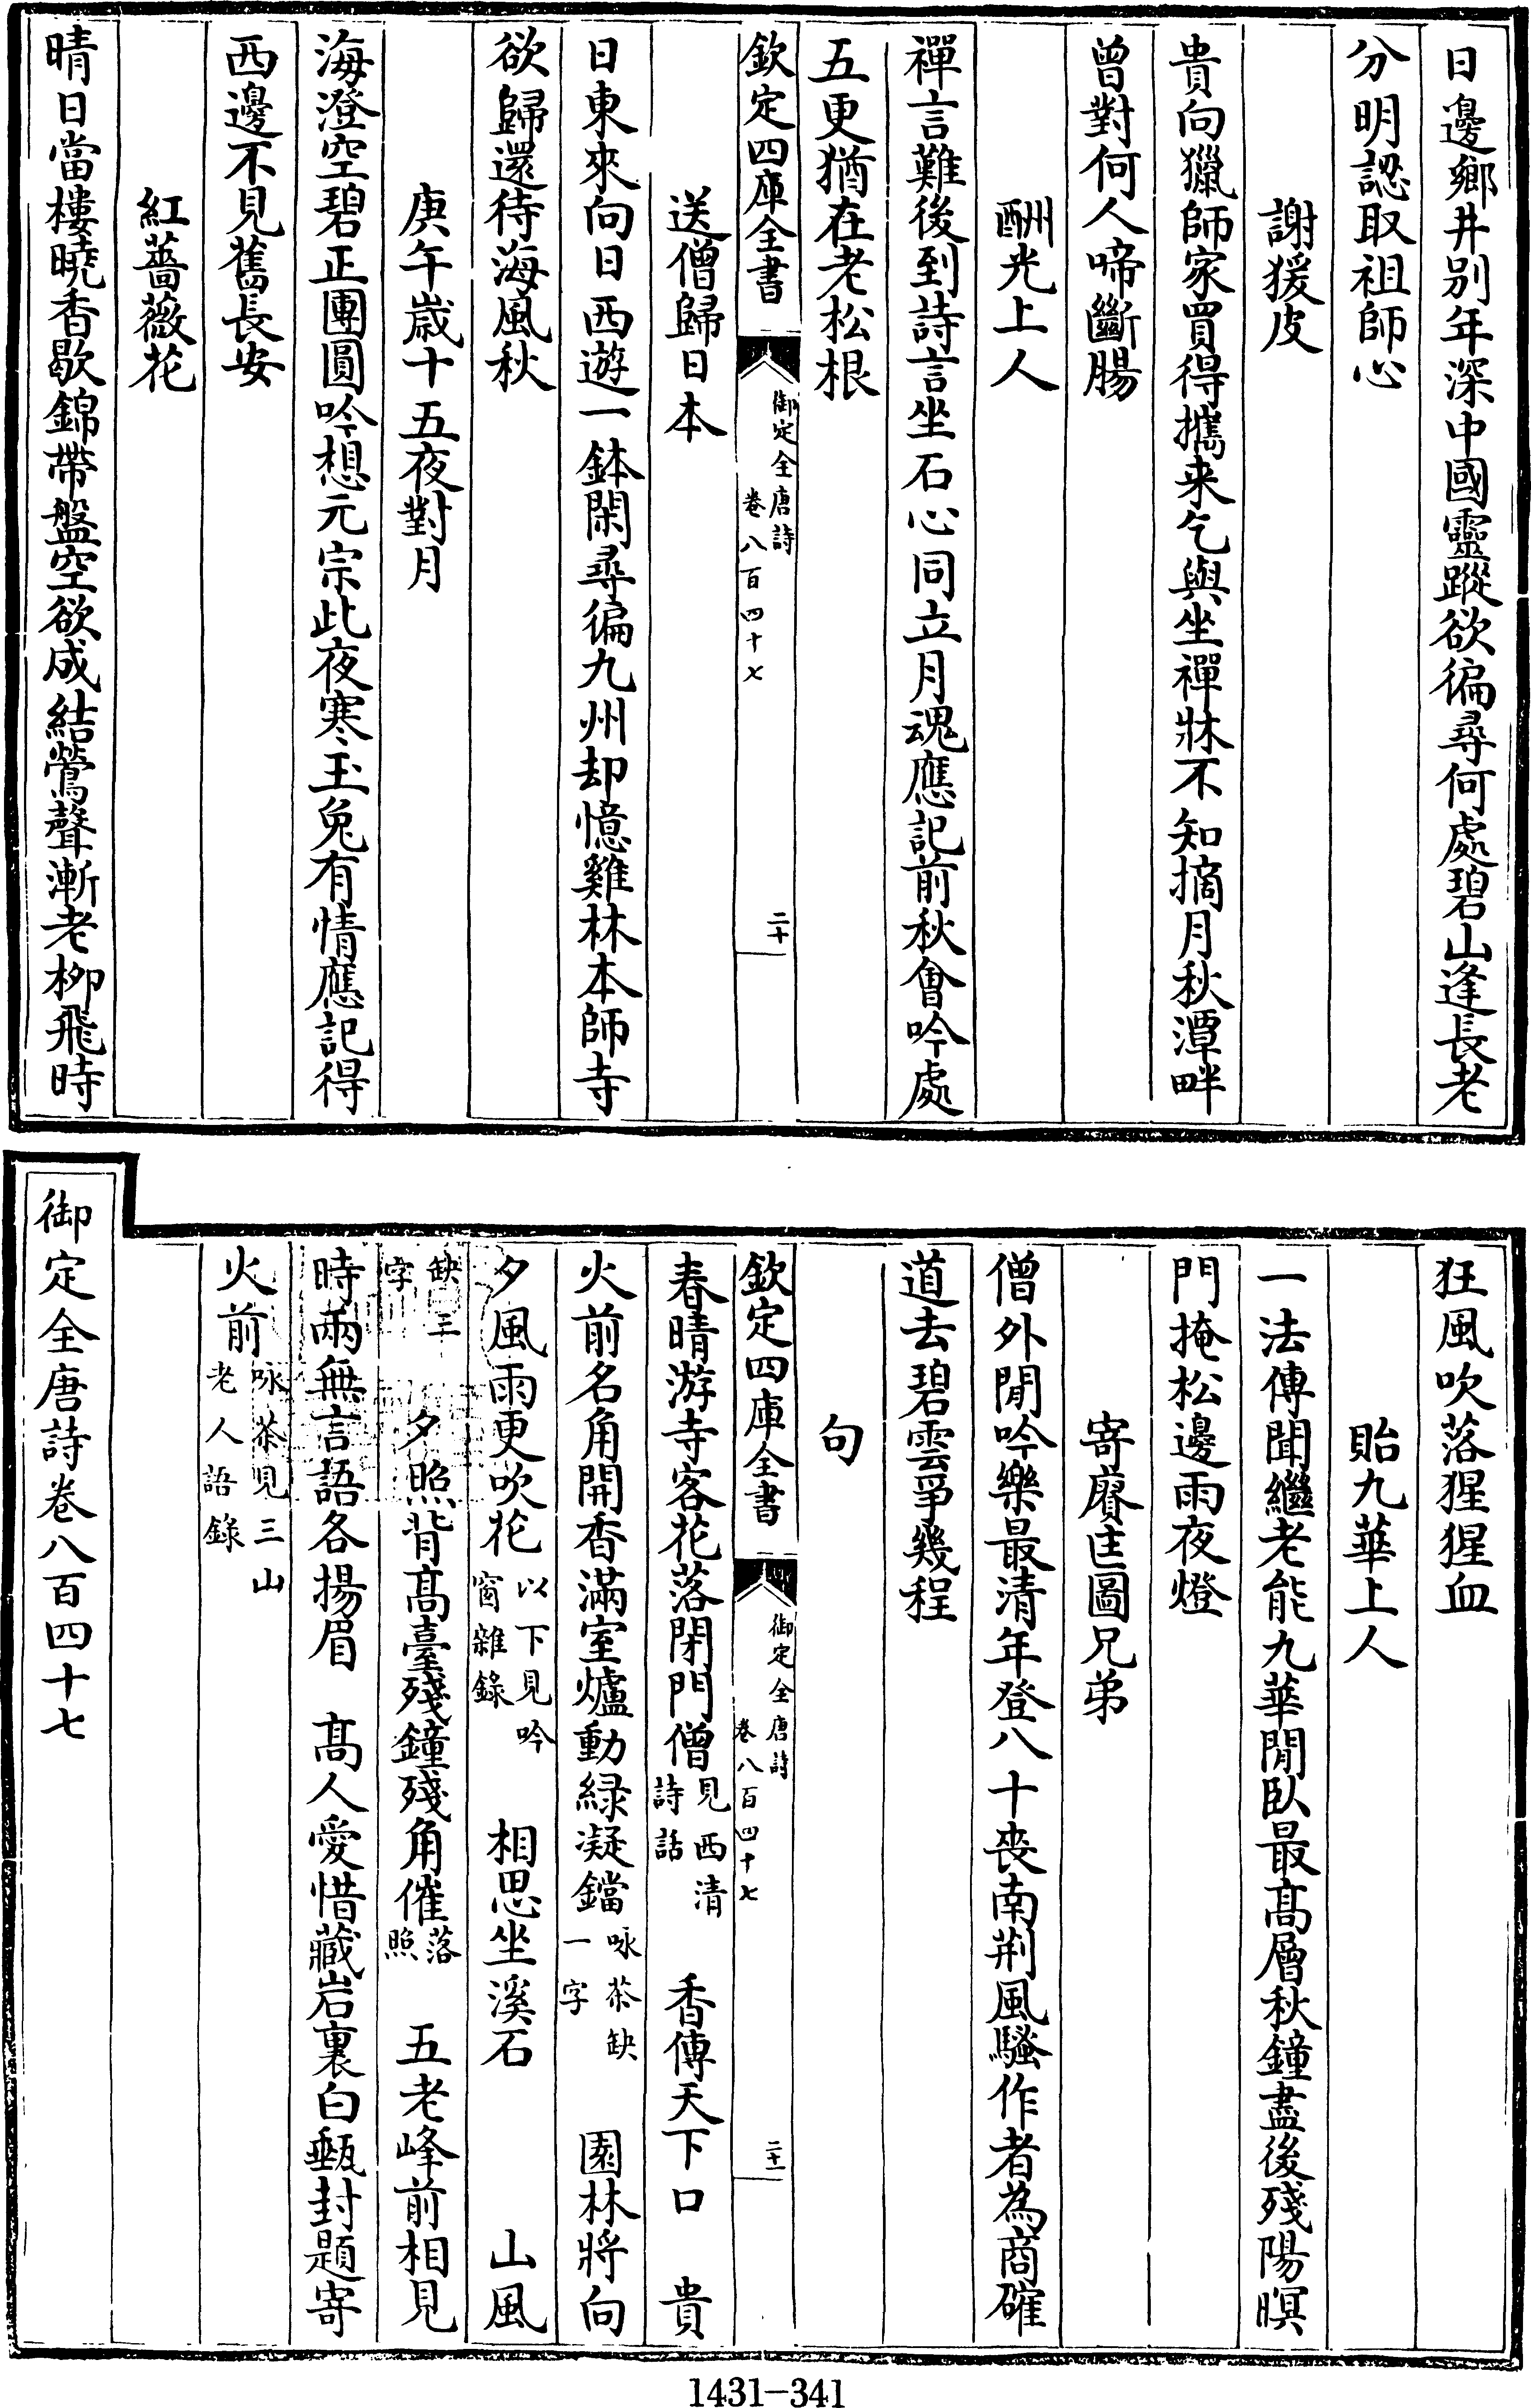 日邊鄉井别年深中國靈蹤欲徧尋何處碧山逢長老
分明認取祖師心
謝猨皮
貴向獵師家買得攜来乞與坐禪牀不知摘月秋潭畔
曾對何人啼斷腸
酬光上人
禪言難後到詩言坐石心同立月魂應記前秋會吟處
五更猶在老松根
欽定四庫全書
御定全唐詩
卷八百四十七
二十
送僧歸日本
日東來向日西遊一鉢閑尋徧九州却憶雞林本師寺
欲歸還待海風秋
庚午歳十五夜對月
海澄空碧正團圓吟想元宗此夜寒玉兔有情應記得
西邊不見舊長安
紅薔薇花
晴日當樓曉香歇錦帶盤空欲成結鶯聲漸老柳飛時
狂風吹落猩猩血
貽九華上人
一法傳聞繼老能九華閒臥最高層秋鐘盡後殘陽暝
門掩松邊雨夜燈
寄廖匡圖兄弟
僧外閒吟樂最清年登八十喪南荆風騷作者為商確
道去碧雲爭幾程
句
欽定四庫全書
御定全唐詩
卷八百四十七
二十一
春晴游寺客花落閉門僧見西清詩話 香傳天下口 貴
火前名角開香滿室爐動緑凝鐺咏茶缺一字 園林將向
夕風雨更吹花以下見吟窗雜錄 相思坐溪石 山風
缺三字 夕照背高臺殘鐘殘角催落照 五老峰前相見
時兩無言語各揚眉 高人愛惜藏岩裏白甀封題寄
火前咏茶見三山老人語錄
御定全唐詩卷八百四十七
1431-341